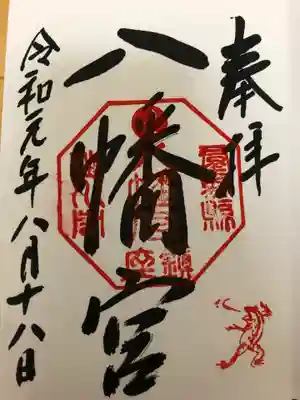 奉拝
八幡宮
令和元年八月十八日